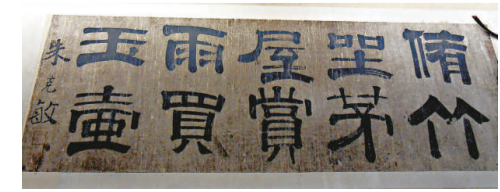 脩竹
坐茅
屋賞
雨買
玉壺
朱克敏